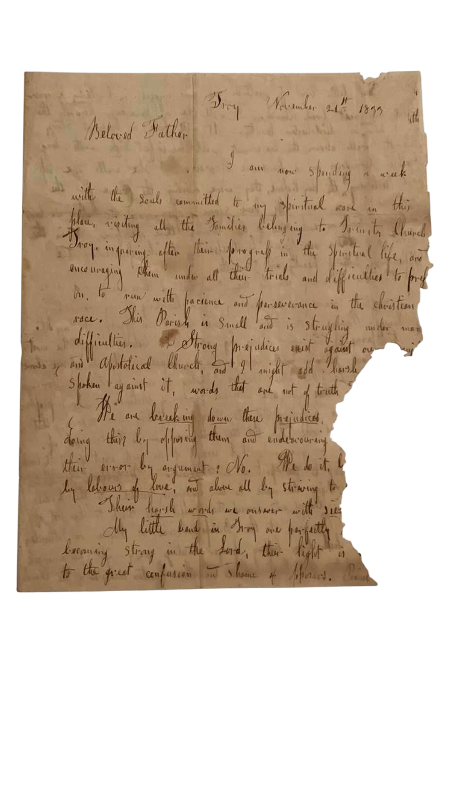 Troy November 21st 1833
Beloved Father
I am now spending a week
with the souls committed to my spiritual care in this
place, visiting all the families belonging to Trinity Church
Troy, inquiring after their progress in the spiritual life, and
encouraging them under all their trials and difficulties to
on, to run with patience and perseverance in the christian
race. This Parish is small and is strugling under many
difficulties. Strong prejudices exist against our
and Apostolical Church, and I might add harsh
spoken against it, words that are not of truth
We are breaking down these prejudices,
doing this by opposing them and endeavouring
their error by argument? No. We do it,
by labours of love, and above all by striving to
Their harsh words we answer with
My little band in Troy are perfectly
becoming strong in the Lord, their light is
to the great confusion and shame of opposers.